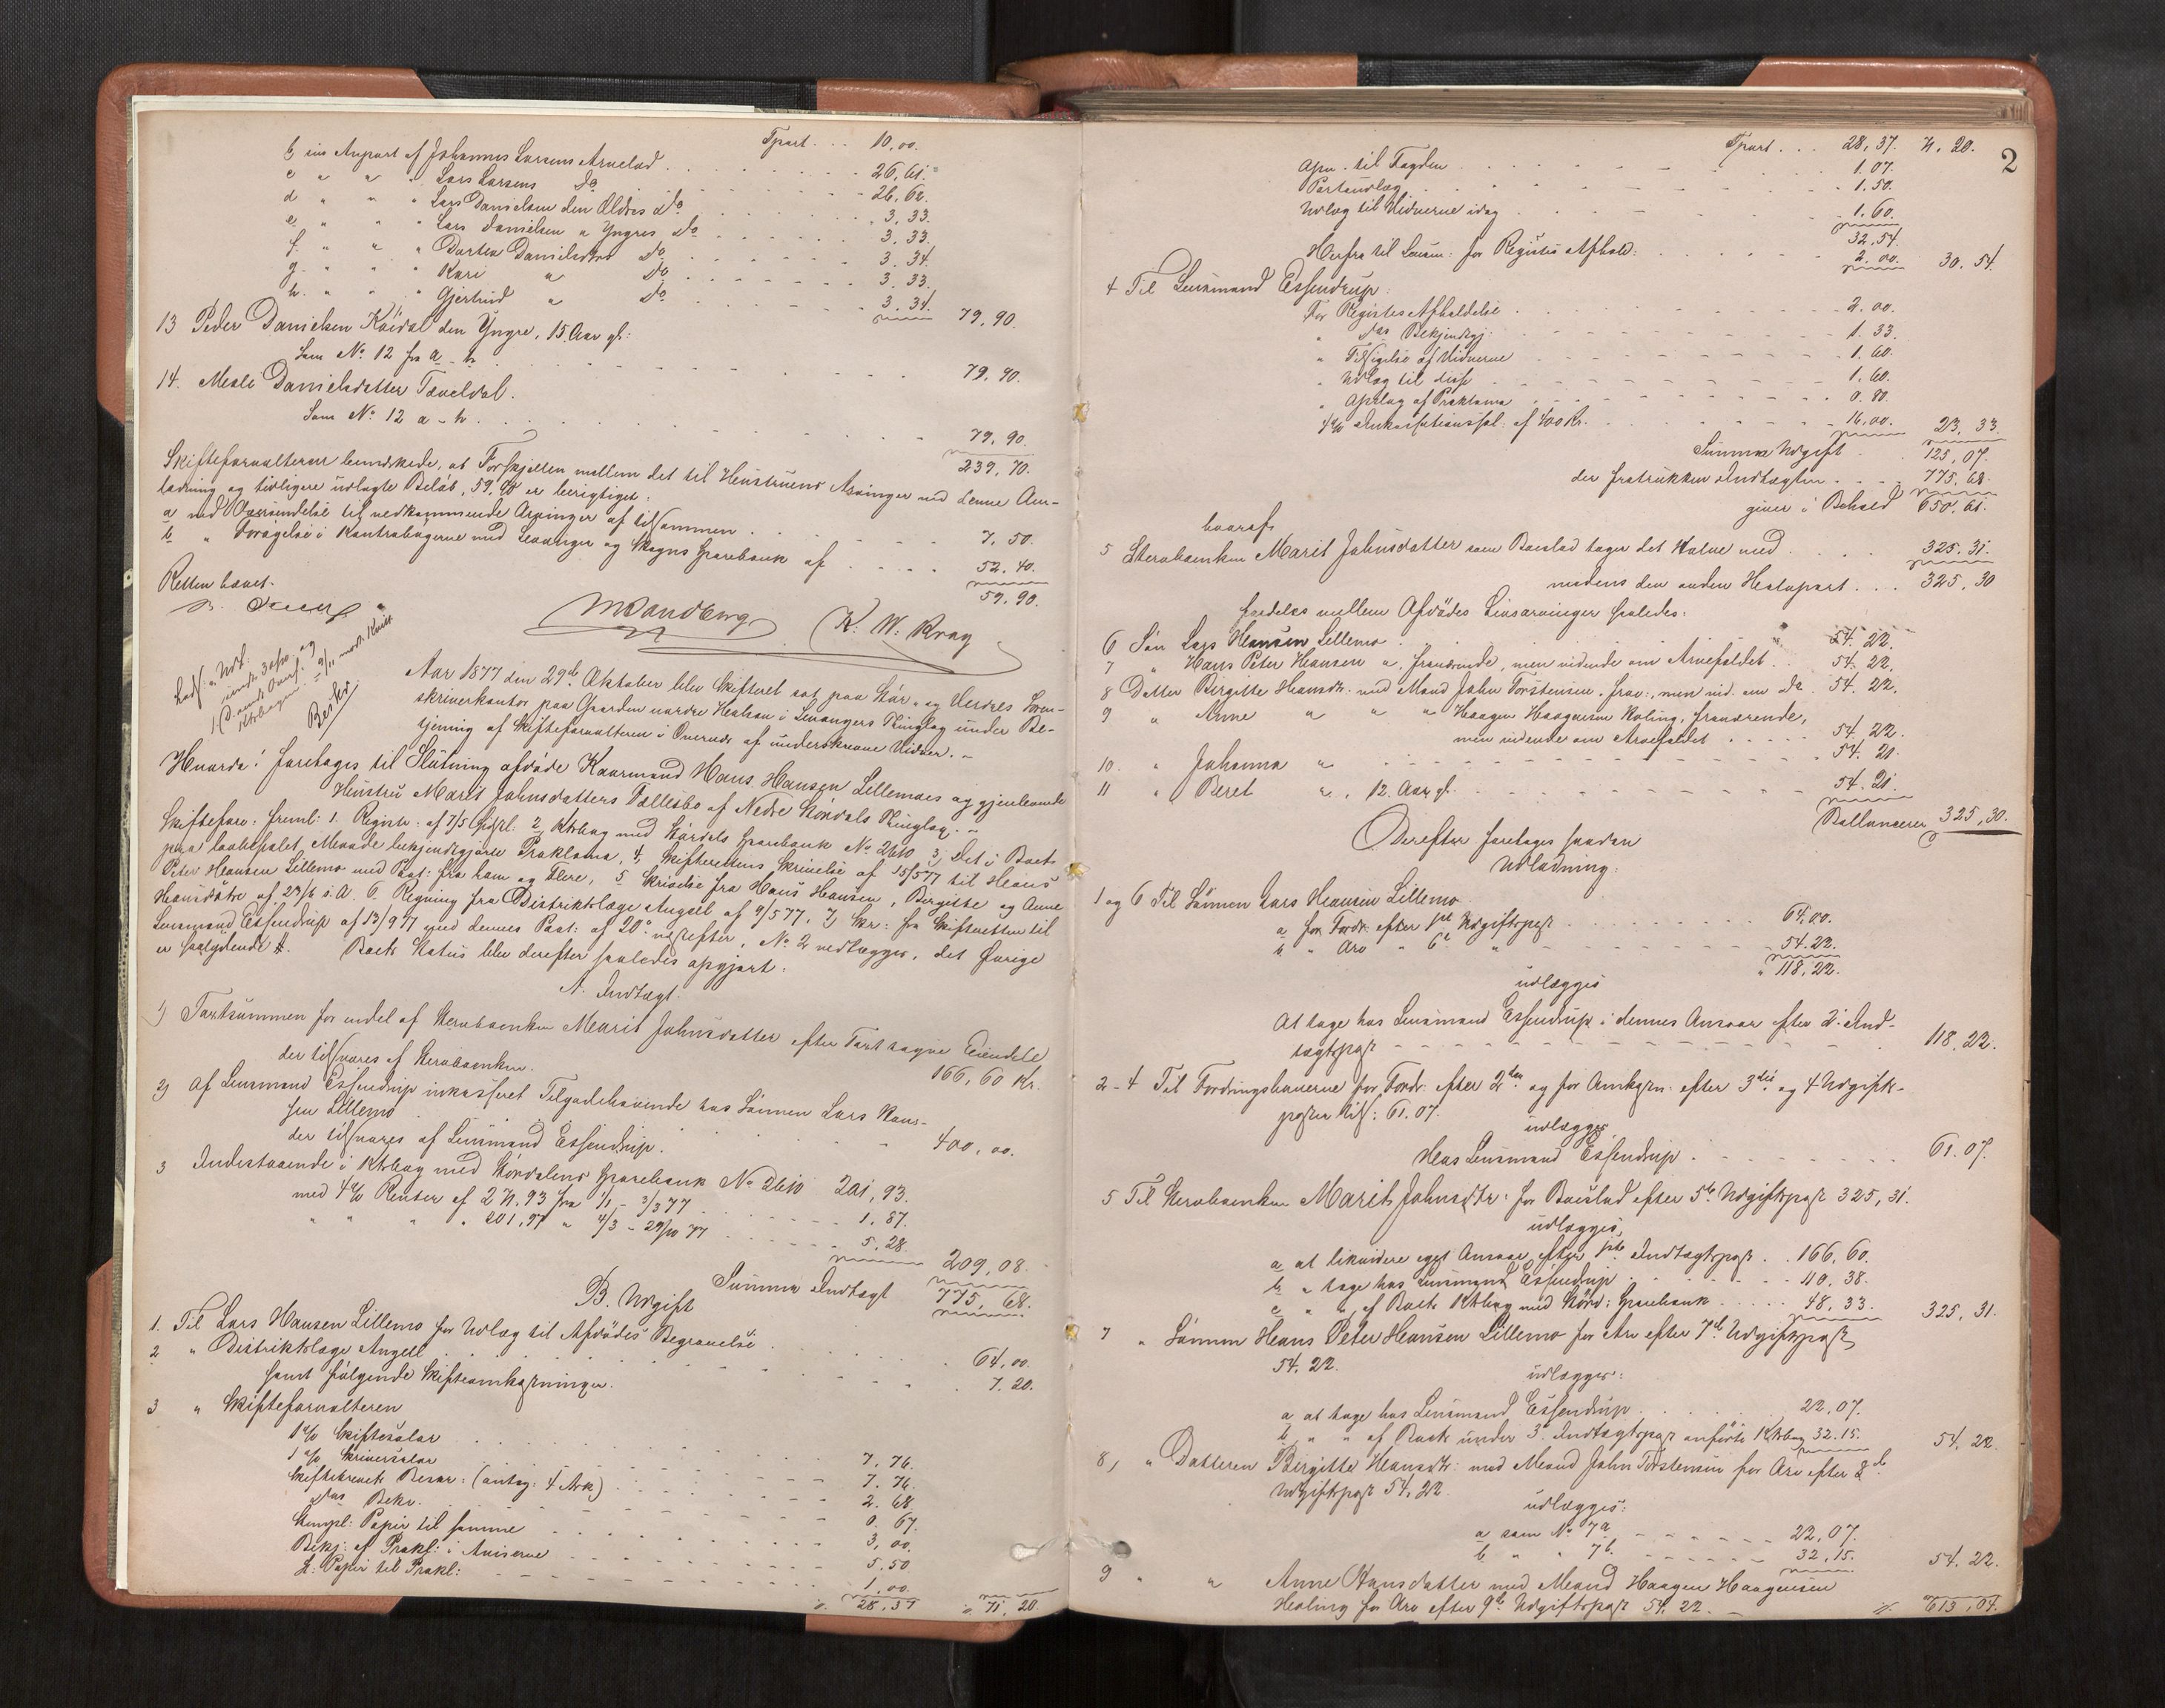 Tpart . . . 10,00.
b, sin Anpart af Johannes Larsens Arvelod . . . 26,61.
c " " " Lars Larsens Do . . . 26,62.
d " " " Lars Danielsen den Ældres Do . . . 3,33.
e, " " " Lars Danielsen " Yngres Do . . . 3,33.
f. " " " Dorten Danielsdtrs Do . . . 3.34.
g. " " " Kari " Do . . . 3.33.
h. " " " Gjertrud " Do . . . 3.34. 79,90.
13 Peder Danielsen Köidal den Yngre, 15 Aar gl:
Som No 12 fra a - h . . . 79,90.
14. Danielsdatter
Som No 12 a - h . . . 79,90.
239,70.
Skifteforvalteren bemærkede, at Forskjellen mellem det til Hustruens Arvinger ved denne Ud-
lodning og tidligere udlagte Beløb, 59,90 er berigtiget:
a ved Oversendelse til vedkommende Arvinger af tilsammen . . . 7,50.
b " Forøgelse i Kontrabøgerne med Levanger og Skogns Sparebank af . . . 52.40.
59,90.
Retten hævet.
K. W. Krag
Aar 1877 den 29de Oktober blev Skifteret sat paa Stør- og Verdals Soren-
skriverkontor paa Gaarden nordre Healsan i Levangers Thinglag under Be-
tjening af Skifteforvalteren i Overvær af underskrevne Vidner. -
Hvorda: foretages til Slutning afdøde Kaarmand Hans Hansen Lillemoes og gjenlevende
Hustru Marit Johnsdatters Fællesbo af Nedre Stördals Thinglag. -
Skifteforv: freml: 1. Registr: af 7/5 2, Ktrbog med Stördals Sparebank No 2610 3, Det i Boet
paa lovbefalet Maade bekjendtgjorte Proklama, 4, Skifterettens Skrivelse af 15/5 77 til Hans
Peter Hansen Lillemo med Paat: fra ham og Flere, 5 Skrivelse fra Hans Hansen, Birgitte og Anne
Hansdøtre af 23/6 d.A. 6. Regning fra Distriktslæge Angell af 9/5 77, 7, Skr: fra Skifteretten til
Lensmand Essendrup af 13/9 77 med dennes Paat: af 20de næstefter, No 2 vedlægges, det Øvrige
er saalydende #. Boets Status blev derefter saaledes opgjort.
A. Indtægt.
1) Taxtsummen for endel af Sterbøenken Marit Johnsdatter efter Taxt tagne Eiendele
der tilsvares af Sterbøenken. 166,60 Kr.
2) Af Lensmand Essendrup inkasseret Tilgodehavende hos Sønnen Lars Han-
sen Lillemo
der tilsvares af Lensmand Essendrup. . . . 400,00.
3 Indestaaende i Ktrbog med Stördalens Sparebank No 2610 201,93.
med 4% Renter af 271.93 fra 1/1 - 3/3 77 . . . 1.87.
" " " " 201,97 " 4/3 - 29/10 77 . . . 5.28. 209,08.
Summa Indtægt 775,68.
B. Udgift
1. Til Lars Hansen Lillemo for Udlæg til Afdødes Begravelse . . . 64,00.
2 " Distriktslæge Angell . . . 7.20.
samt følgende Skifteomkostninger.
3 " Skifteforvalteren
1% Skiftesalar . . . 7.76.
1% Skriversalar . . . 7.76.
Skiftebrevets Beskr: (antag: 4 Ark) . . . 2.68.
Bekr. . . . 0.67.
Stempl: Papir til samme . . . 3,00.
Bekj: af Prokl: i Aviserne . . . 5.50
St: Papir til Prokl: . . . 1.00.
28,37 71,20.
2
Tpart . . . 28,37. 71.20.
Opn. til Fogden . . . 1.07.
Portoudlæg . . . 1.50.
Udlæg til Vidnerne idag . . . 1.60.
32,54.
Herfra til Lensm: for Registr Afhold: . . . 2.00. 30.54.
4 Til Lensmand Essendrup:
For Registr Afholdelse . . . 2.00.
" Bekjendtgj: . . . 1.33.
" Tilsigelse af Vidnerne . . . 1.60.
" Udlæg til disse . . . 1.60.
" Opslag af Proklama . . . 0.80.
4% Inkassationssal. af 400 Kr. . . . 16,00. 23,33.
Summa Udgift . 125,07.
der fratrukken Indtægten . . . 775,68.
giver i Behold 650,61.
hvoraf
5 Sterbøenken Marit Johnsdatter som Boeslod tager det Halve med . . . 325.31.
medens den anden Halvpart . . . 325,30
fordeles mellem Afdødes Livsarvinger saaledes:
6 Søn Lars Hansen Lillemo . . . 54,22.
7 " Hans Peter Hansen " , fraværende, men vidende om Arvefaldet . . 54,22.
8 Datter Birgitte Hansdtr. med Mand John Torstensen, frav:, men vid. om Do. 54.22.
9 " Anne " " " Haagen Haagensen , fraværende,
men vidende om Arvefaldet . . . 54.22.
10. " Johanna " . . . 54.21.
11 " Beret " , 12. Aar gl . . . 54.21.
Ballancerer 325,30.
Derefter foretages saadan
Udlodning:
1 og 6 Til Sønnen Lars Hansen Lillemo
a, for Fordr. efter 1ste Udgiftspost . . . 64,00.
b " Arv " 6te " . . . 54.22.
" 118,22.
udlægges
At tage hos Lensmand Essendrup i dennes Ansvar efter 2. Ind-
tægtspost . . . 118.22.
2-4 Til Fordringshaverne for Fordr. efter 2den og for Omkostn: efter 3die og 4 Udgifts-
poster tils: 61.07.
udlægges
Hos Lensmand Essendrup . . . 61.07.
5 Til Sterbøenken Marit Johnsdtr: for Boeslod efter 5te Udgiftspost 325,31.
udlægges,
a at likvidere eget Ansvar efter 1ste Indtægtspost . . 166,60.
b " tage hos Lensmand Essendrup . . . 110.38.
c " " af Boets Ktrbog med Størd: Sparebank . . . 48,33. 325,31.
7 " Sønnen Hans Peter Hansen Lillemo for Arv efter 7de Udgiftspost
54.22.
udlægges:
a at tage hos Lensmand Essendrup . . . 22,07.
b, " " af Boets under 3. Indtægtspost anførte Ktrbog 32.15. 54,22.
8, " Datteren Birgitte Hansdtr: med Mand John Torstensen for Arv efter 8de
Udgiftspost 54,22.
udlægges:
a som No 7a . . . 22,07.
b " " 7b . . . 32,15. 54.22.
9 " " Anne Hansdatter med Mand Haagen Haagensen
for Arv efter 9de Udgiftspost 54.22. 613,04.